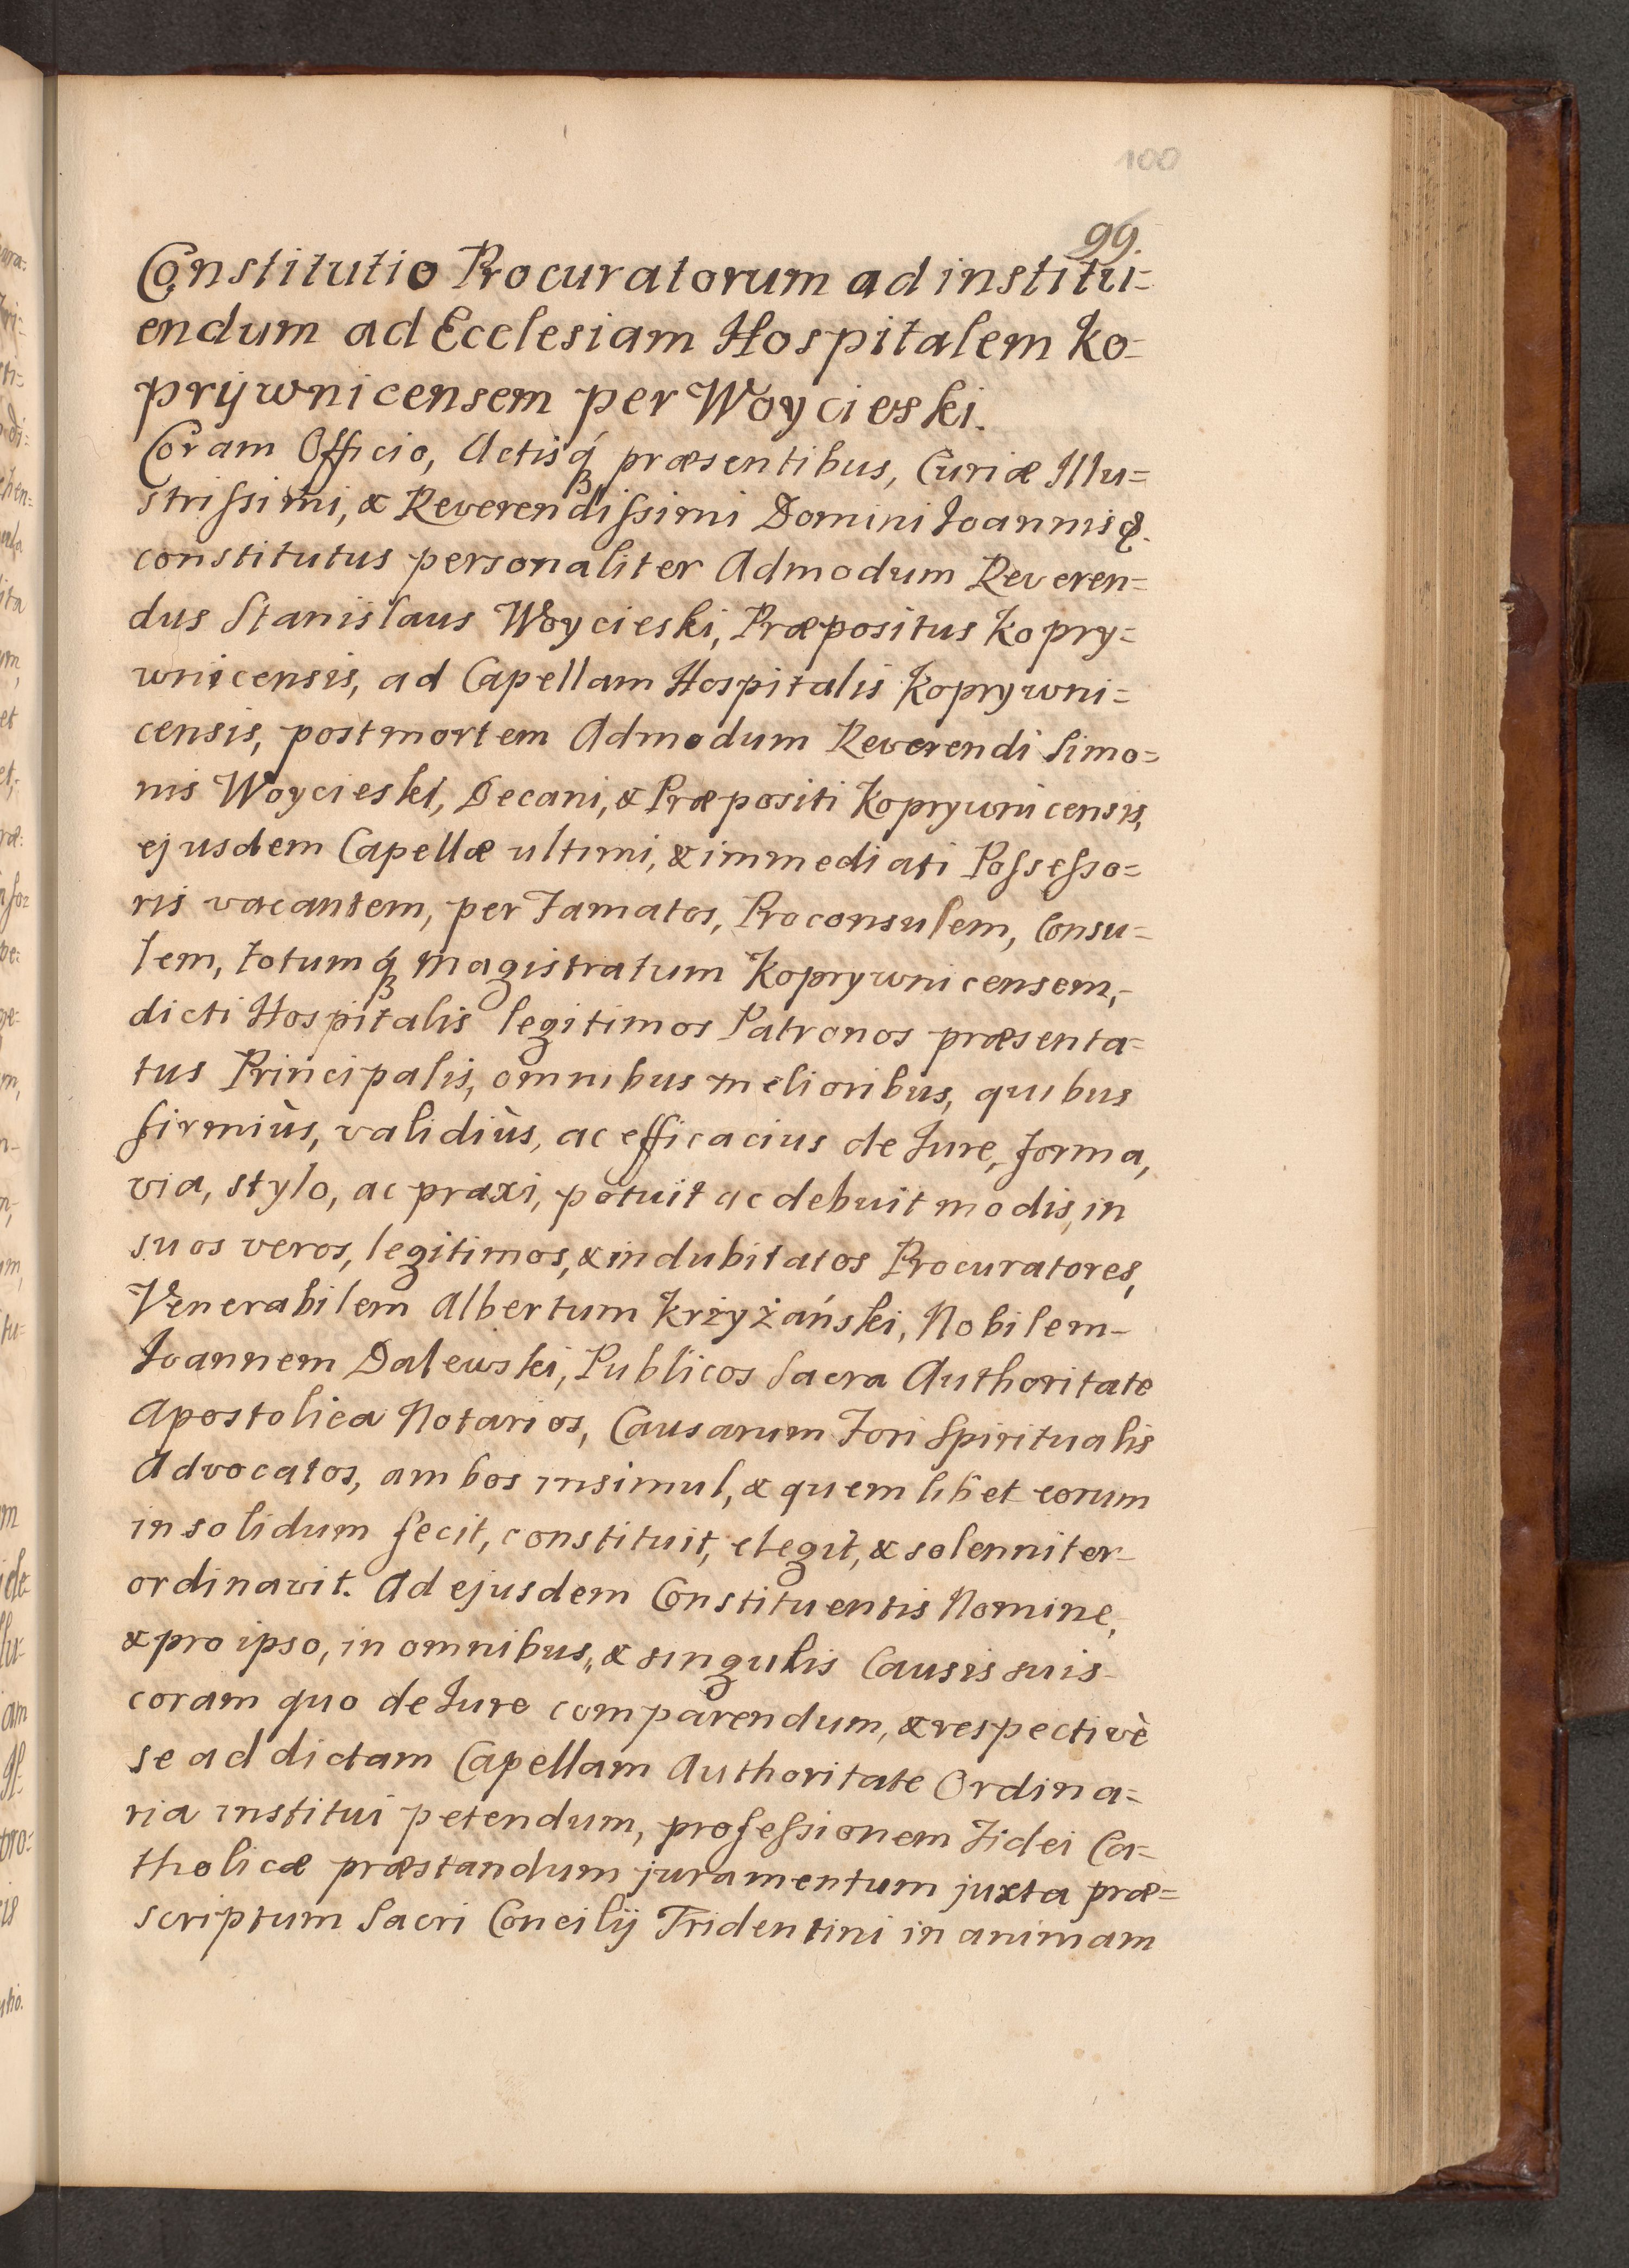 100
99.
Constitutio Procuratorum ad institu=
endum ad Ecclesiam Hospitalem Ko=
prijwnicensem per Woycieski.
Coram Officio, Actisq́ꝫ præsentibus, Curiæ Illu=
strissimi, & Reverendissimi Domini Joannis &.
constitutus personaliter Admodum Reveren=
dus Stanislaus Woycieski, Præpositus Kopry=
wnicensis, ad Capellam Hospitalis Koprywni=
censis, post mortem Admodum Reverendi Simo=
nis Woycieski, Decani, & Præpositi Koprywnicensis,
ejusdem Capellæ ultimi, & immediati Possesso=
ris vacantem, per Famatos, Proconsulem, Consu=
lem, totumq́ꝫ Magistratum Koprywnicensem,-
dicti Hospitalis legitimos Patronos præsenta=
tus Principalis, omnibus melioribus, quibus
firmiùs, validiùs, ac efficacius de Jure, forma,
via, stylo, ac praxi, potuit ac debuit modis, in
suos veros, legitimos, & indubitatos Procuratores,
Venerabilem Albertum Krzyżański, Nobilem-
Joannem Dalewski, Publicos Sacra Authoritate
Apostolica Notarios, Causarum Fori Spiritualis
Advocatos, ambos insimul, & quemlibet eorum
in solidum fecit, constituit, elegit, & solenniter-
ordinavit. Ad ejusdem Constituentis Nomine,
& pro ipso, in omnibus, & singulis Causis suis-
coram quo de Jure comparendum, & respectivè
se ad dictam Capellam Authoritate Ordina=
ria institui petendum, professionem Fidei Ca=
tholicæ præstandum juramentum juxta præ=
scriptum Sacri Concilij Tridentini in animam